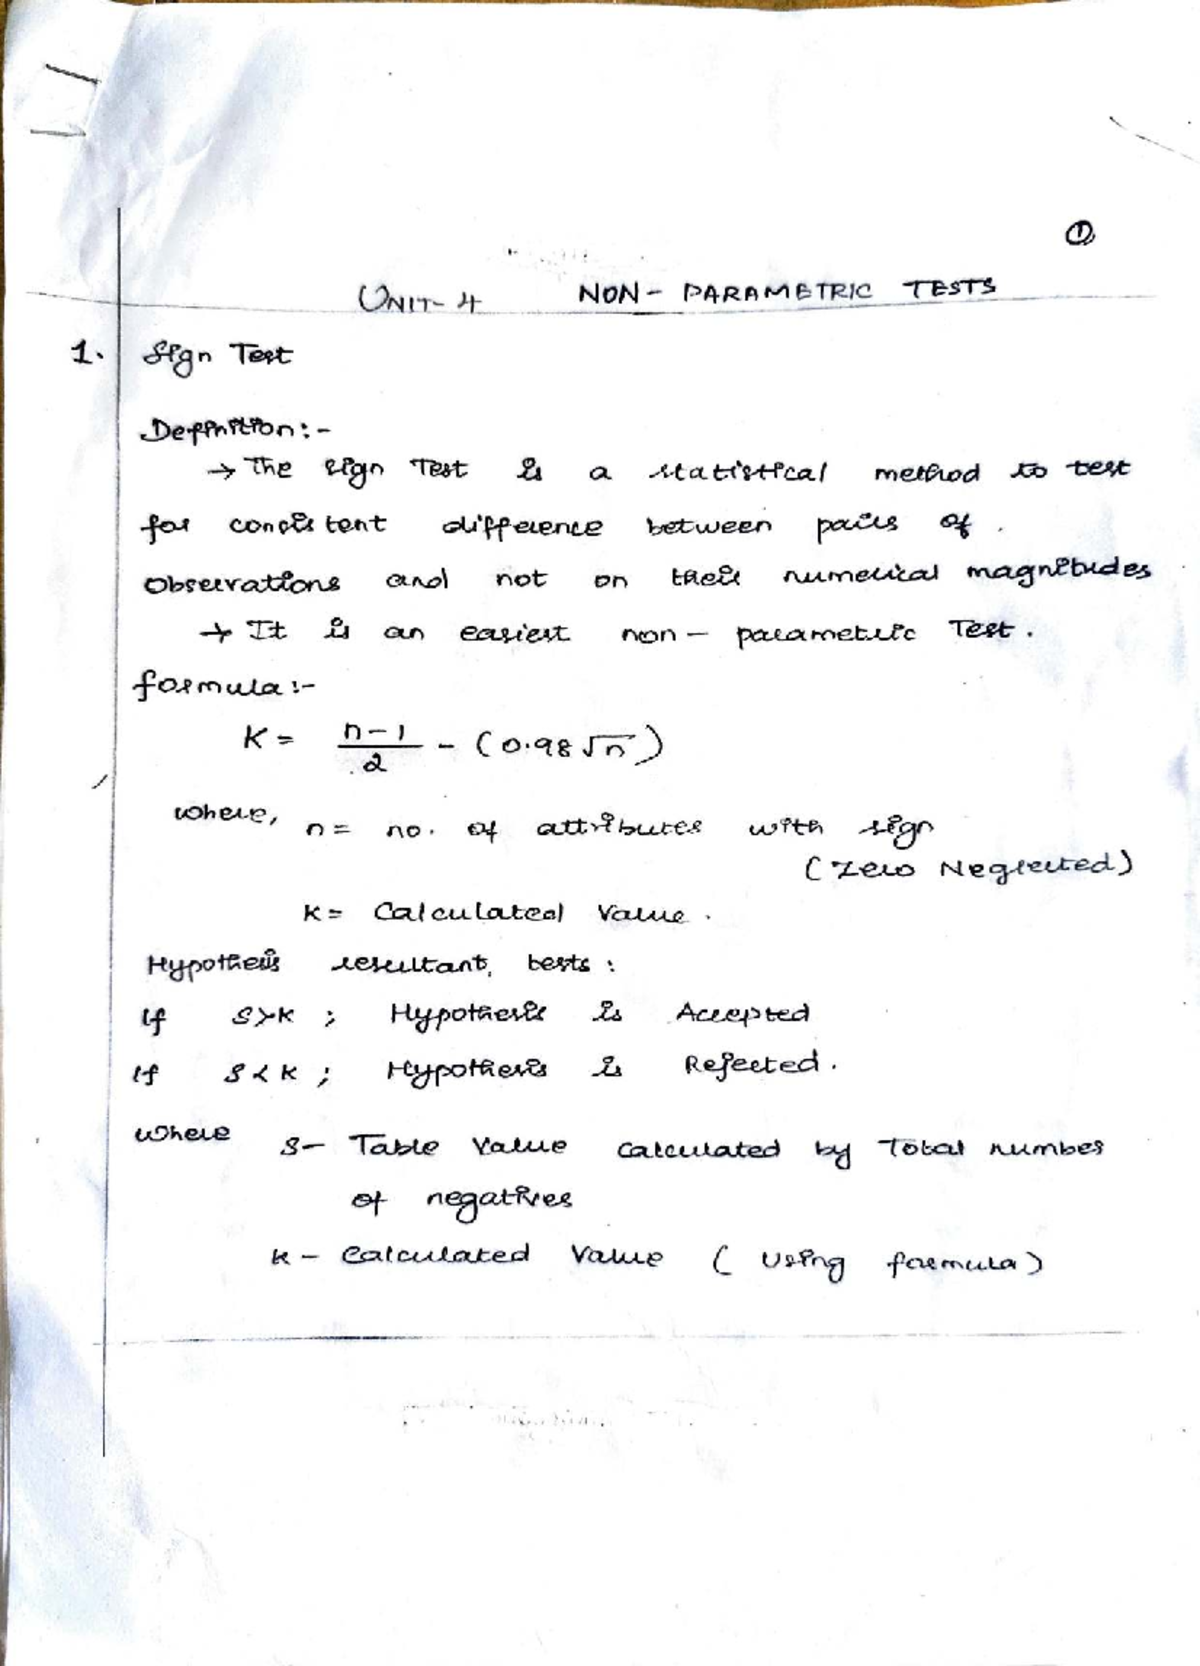 ①
UNIT-4 NON-PARAMETRIC TESTS
1. Sign Test
Definition:-
→ The sign Test is a statistical method to test
for consistent difference between pairs of
Observations and not on their numerical magnitudes
→ It is an easiest non-parametric Test.
formula:-
K = n-1/2 - (0.98√n)
where, n = no. of attributes with sign
(Zero Neglected)
K = Calculated Value.
Hypothesis resultant, tests:
If S>K ; Hypothesis is Accepted
If S<K ; Hypothesis is Rejected.
where S- Table Value calculated by Total number
of negatives
K- Calculated Value (Using formula)